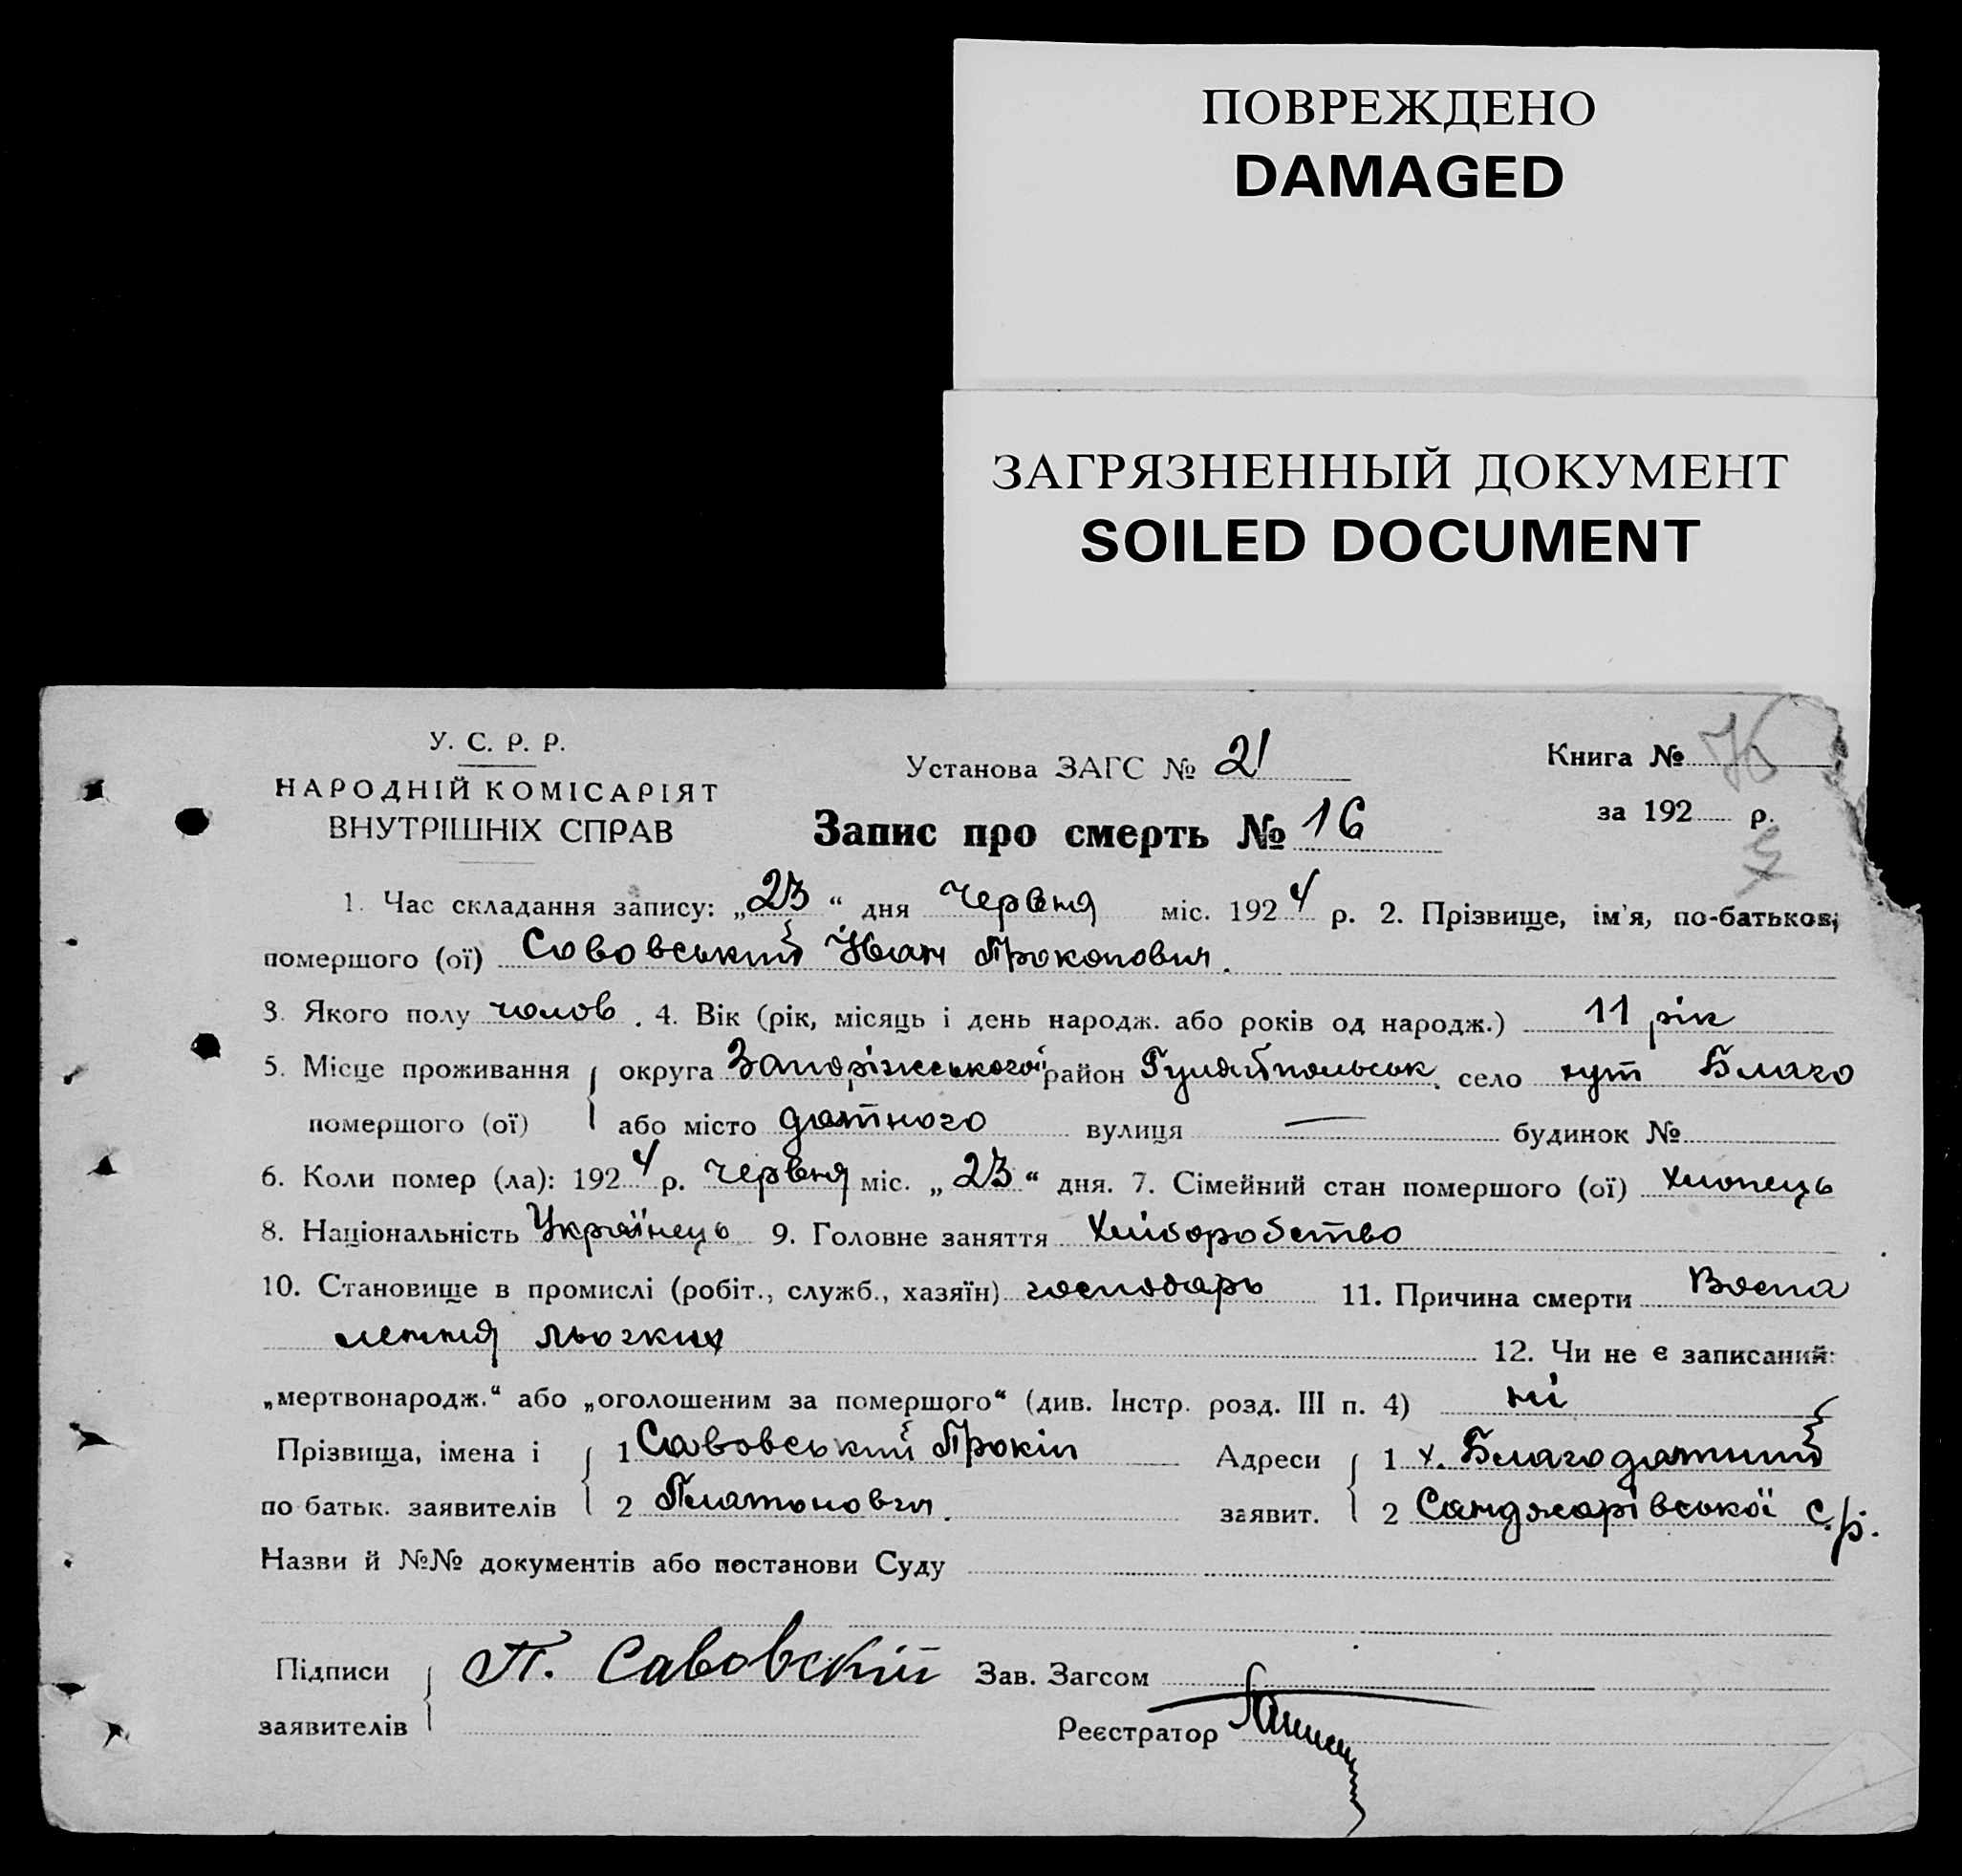 ПОВРЕЖДЕНО
DAMAGED
ЗАГРЯЗНЕННЫЙ ДОКУМЕНТ
SOILED DOCUMENT
У. С. Р. Р.
НАРОДНІЙ КОМІСАРІЯТ
ВНУТРІШНІХ СПРАВ
Установа ЗАГС № 21
Запис про смерть № 16
Книга №
за 192 р.
1. Час складання запису: „23“ дня червня міс. 1924 р. 2. Прізвище, ім'я, по-батькові
помершого (ої) Савовський Іван Прокопович.
3. Якого полу чолов. 4. Вік (рік, місяць і день народж. або років од народж.) 11 рік
5. Місце проживання округа Запоріжського район Гуляйпольськ. село хут Благо
помершого (ої) або місто датного вулиця — будинок №
6. Коли помер (ла): 1924 р. червня міс. „23“ дня. 7. Сімейний стан помершого (ої) хлопець
8. Національність Українець 9. Головне заняття Хліборобство
10. Становище в промислі (робіт., служб., хазяїн) господарь 11. Причина смерти Воспа
лення льогких 12. Чи не є записаний:
„мертвонародж.“ або „оголошеним за помершого“ (див. Інстр. розд. III п. 4) ні
Прізвища, імена і 1 Савовський Прокіп Адреси 1 х. Благодатний
по батьк. заявителів 2 Платонович. заявит. 2 Санджарівської с.р.
Назви й №№ документів або постанови Суду
Підписи П. Савовскій Зав. Загсом
заявителів Реєстратор